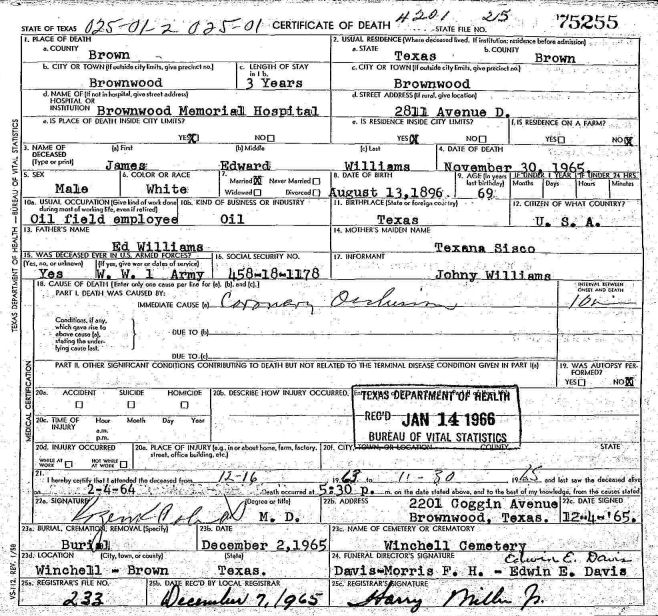 STATE OF TEXAS 025-01-2 025-01 CERTIFICATE OF DEATH 4201 215 STATE FILE NO. 75255
1. PLACE OF DEATH 2. USUAL RESIDENCE (Where deceased lived. If institution: residence before admission)
a. COUNTY Brown a. STATE Texas b. COUNTY Brown
b. CITY OR TOWN (If outside city limits, give precinct no.) Brownwood c. LENGTH OF STAY in 1 b. 3 Years c. CITY OR TOWN (If outside city limits, give precinct no.) Brownwood
d. NAME OF (If not in hospital, give street address) HOSPITAL OR INSTITUTION Brownwood Memorial Hospital d. STREET ADDRESS (If rural, give location) 2811 Avenue D.
e. IS PLACE OF DEATH INSIDE CITY LIMITS? e. IS RESIDENCE INSIDE CITY LIMITS? f. IS RESIDENCE ON A FARM?
YES X NO YES X NO YES NO X
3. NAME OF DECEASED (Type or print) (a) First (b) Middle (c) Last 4. DATE OF DEATH
James Edward Williams November 30, 1965
5. SEX 6. COLOR OR RACE 7. Married X Never Married Widowed Divorced 8. DATE OF BIRTH 9. AGE (In years last birthday) IF UNDER 1 YEAR IF UNDER 24 HRS.
Months Days Hours Minutes
Male White August 13, 1896 69
10a. USUAL OCCUPATION (Give kind of work done during most of working life, even if retired) 10b. KIND OF BUSINESS OR INDUSTRY 11. BIRTHPLACE (State or foreign country) 12. CITIZEN OF WHAT COUNTRY?
Oil field employee Oil Texas U. S. A.
13. FATHER'S NAME 14. MOTHER'S MAIDEN NAME
Ed Williams Texana Sisco
15. WAS DECEASED EVER IN U.S. ARMED FORCES? 16. SOCIAL SECURITY NO. 17. INFORMANT
(Yes, no, or unknown) (If yes, give war or dates of service)
Yes W. W. 1 Army 458-18-1178 Johny Williams
18. CAUSE OF DEATH [Enter only one cause per line for (a), (b), and (c).] INTERVAL BETWEEN ONSET AND DEATH
PART I. DEATH WAS CAUSED BY:
IMMEDIATE CAUSE (a) Coronary Occlusion
Conditions, if any, which gave rise to above cause (a), stating the underlying cause last.
DUE TO (b)
DUE TO (c)
PART II. OTHER SIGNIFICANT CONDITIONS CONTRIBUTING TO DEATH BUT NOT RELATED TO THE TERMINAL DISEASE CONDITION GIVEN IN PART I(a) 19. WAS AUTOPSY PERFORMED?
YES NO X
20a. ACCIDENT SUICIDE HOMICIDE 20b. DESCRIBE HOW INJURY OCCURRED.
TEXAS DEPARTMENT OF HEALTH
REC'D JAN 14 1966
BUREAU OF VITAL STATISTICS
20c. TIME OF INJURY Hour a.m. p.m. Month Day Year
20d. INJURY OCCURRED WHILE AT WORK NOT WHILE AT WORK 20e. PLACE OF INJURY (e.g., in or about home, farm, factory, street, office building, etc.) 20f. CITY, TOWN, OR LOCATION COUNTY STATE
21. I hereby certify that I attended the deceased from 12-16 1963 to 11-30 and last saw the deceased alive
on 2-4-64 Death occurred at 5:30 p. m. on the date stated above, and to the best of my knowledge, from the causes stated.
22a. SIGNATURE (Degree or title) M. D. 22b. ADDRESS 2201 Coggin Avenue Brownwood, Texas. 22c. DATE SIGNED 12-4-'65.
23a. BURIAL, CREMATION, REMOVAL (Specify) 23b. DATE 23c. NAME OF CEMETERY OR CREMATORY
Burial December 2, 1965 Winchell Cemetery
23d. LOCATION (City, town, or county) (State) 24. FUNERAL DIRECTOR'S SIGNATURE Edwin E. Davis
Winchell - Brown Texas. Davis-Morris F. H. - Edwin E. Davis
25a. REGISTRAR'S FILE NO. 25b. DATE REC'D BY LOCAL REGISTRAR 25c. REGISTRAR'S SIGNATURE
233 December 7, 1965 Harry Miller Jr.
TEXAS DEPARTMENT OF HEALTH — BUREAU OF VITAL STATISTICS
MEDICAL CERTIFICATION